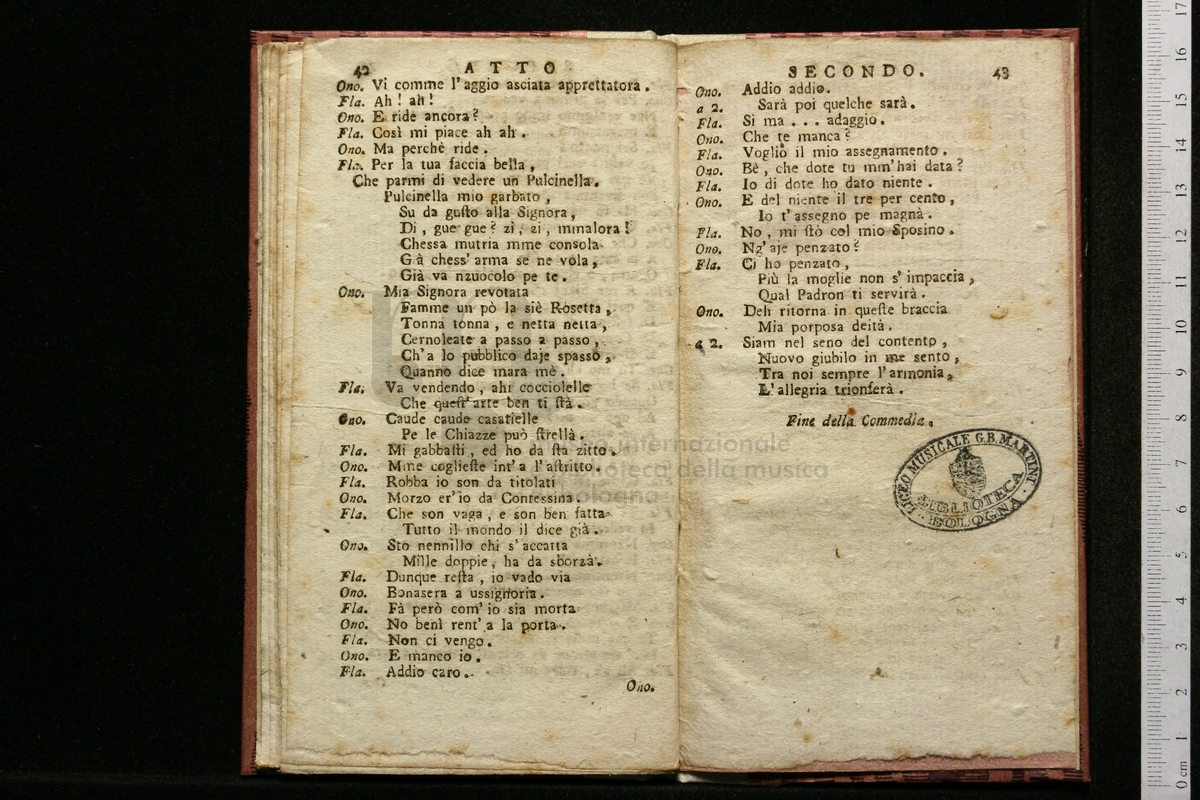 42 ATTO
Ono. Vi comme l'aggio asciata apprettatora.
Fla. Ah! ah!
Ono. E ride ancora?
Fla. Così mi piace ah ah.
Ono. Ma perchè ride.
Fla. Per la tua faccia bella,
Che parmi di vedere un Pulcinella.
Pulcinella mio garbato,
Su da gusto alla Signora,
Di, gue gue? zi, zi, mmalora!
Chessa mutria mme consola
Gà chess'arma se ne vola,
Già va nzuocolo pe te.
Ono. Mia Signora revotata
Famme un pò la siè Rosetta,
Tonna tonna, e netta netta,
Cernoleate a passo a passo,
Ch'a lo pubblico daje spasso,
Quanno dice mara mè.
Fla. Va vendendo, ahi cocciolelle
Che quest'arte ben ti stà.
Ono. Caude caude casatielle
Pe le Chiazze può strellà.
Fla. Mi gabbasti, ed ho da sta zitto.
Ono. Mme coglieste int'a l'astritto.
Fla. Robba io son da titolati
Ono. Morzo er'io da Contessina.
Fla. Che son vaga, e son ben fatta
Tutto il mondo il dice già.
Ono. Sto nennillo chi s'accatta
Mille doppie, ha da sborzà.
Fla. Dunque resta, io vado via
Ono. Bonasera a ussignoria.
Fla. Fà però com'io sia morta
Ono. No benì rent'a la porta.
Fla. Non ci vengo.
Ono. E manco io.
Fla. Addio caro.
Ono.
SECONDO. 43
Ono. Addio addio.
a 2. Sarà poi quelche sarà.
Fla. Si ma... adaggio.
Ono. Che te manca?
Fla. Voglio il mio assegnamento.
Ono. Bè, che dote tu mm'hai data?
Fla. Io di dote ho dato niente.
Ono. E del niente il tre per cento,
Io t'assegno pe magnà.
Fla. No, mi stò col mio Sposino.
Ono. Ng'aje penzato?
Fla. Ci ho penzato,
Più la moglie non s'impaccia,
Qual Padron ti servirà.
Ono. Deh ritorna in queste braccia
Mia porposa deità.
a 2. Siam nel seno del contento,
Nuovo giubilo in me sento,
Tra noi sempre l'armonia,
L'allegria trionferà.
Fine della Commedia.
LICEO MUSICALE G.B. MARTINI
BIBLIOTECA
BOLOGNA
internazionale
biblioteca della musica
bologna
0 cm 1 2 3 4 5 6 7 8 9 10 11 12 13 14 15 16 17